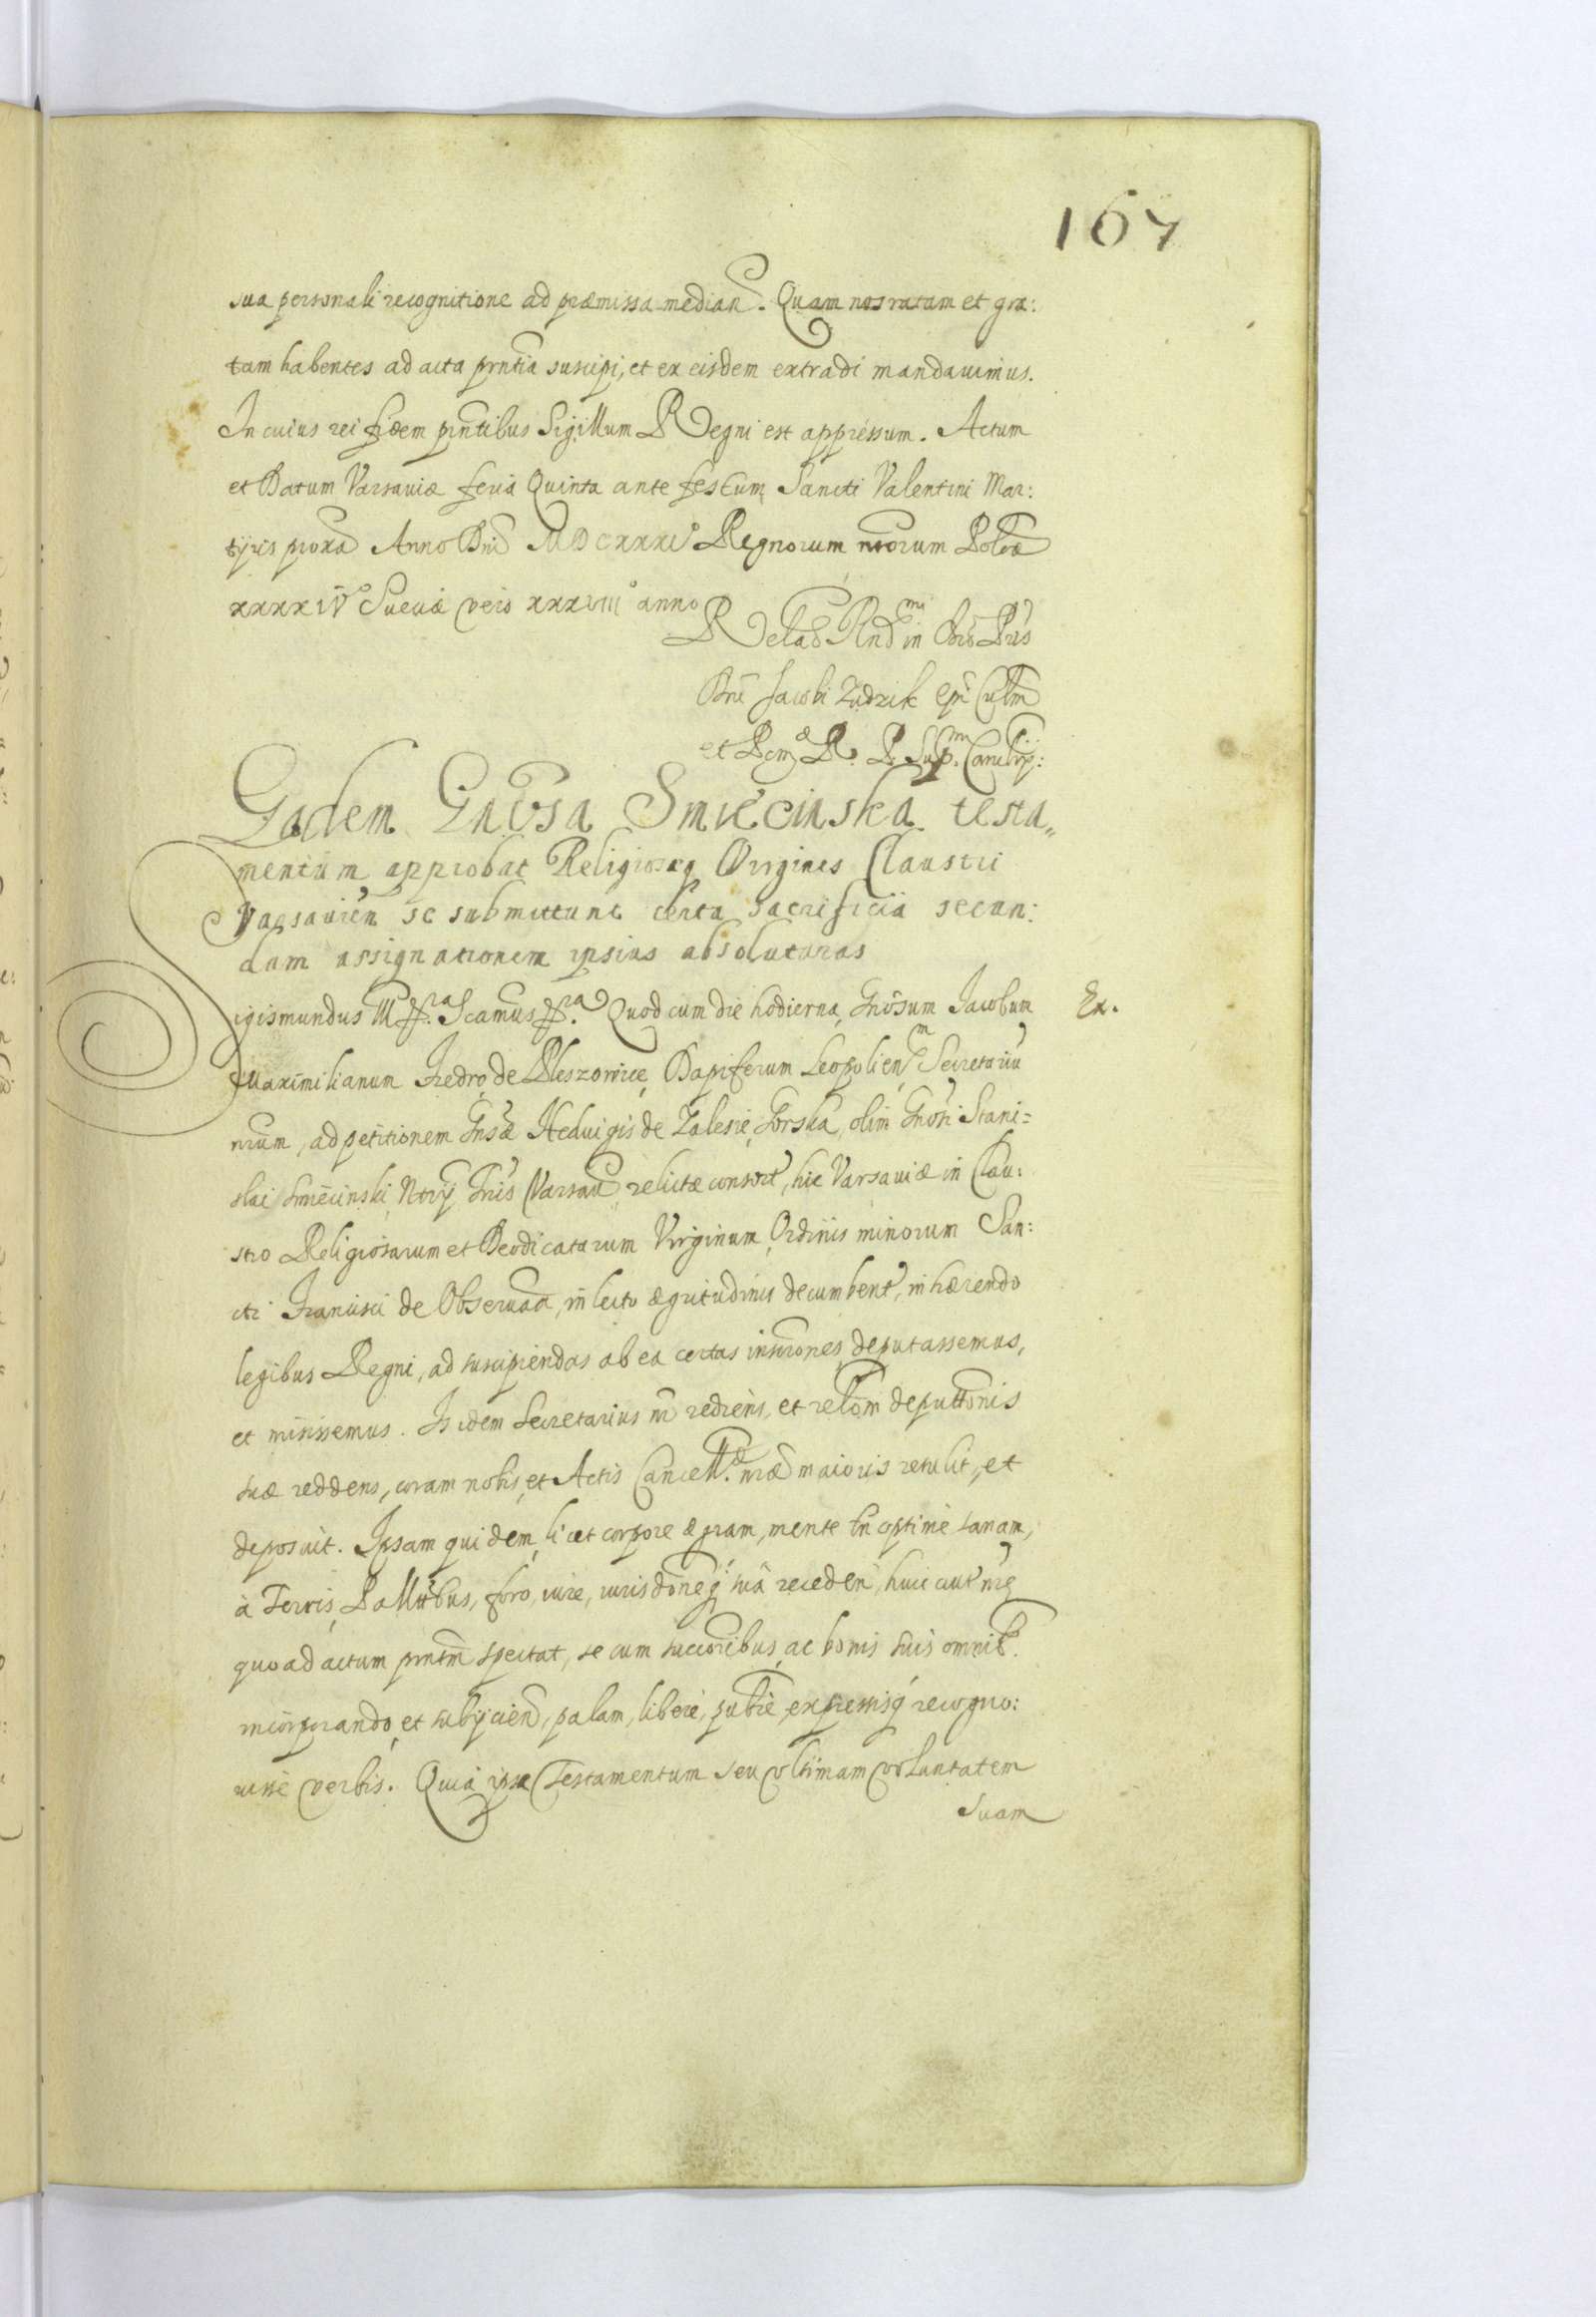 167
sua personali recognitione ad præmissa median. Quam nos ratam et gra:
tam habentes ad acta prntia suscipi, et ex eisdem extradi mandauimus.
In cuius rei fidem prntibus Sigillum Regni est appressum. Actum
et Datum Varsauiæ feria Quinta ante festum Sancti Valentini Mar:
tyris proxa Anno Dni MDCXXXI° Regnorum nrorum Poloæ
XXXXIV° Sueciæ vero XXXVIII° anno
Relao Rndmi in Chro Pris
Dni Jacobi Zadzik Epi Culm
et Pom R. P. Supmi Cancelrij:
Eadem Gnosa Smiecinska testa„
mentum approbat Religiosæq Virgines Claustri
Varsauien se submittunt certa sacrificia secun:
dum assignationem ipsius absoluturas
Sigismundus III ffra Scamus ffra Quod cum die hodierna, Gnosum Jacobum Ex.
Maximilianum Fredro de Pleszowice, Dapiferum Leopolien, Secretariu
nrum, ad petitionem Gnsæ Heduigis de Zalesie, Gorska, olim Gnosi Stani=
slai Smiecinski, Notrij Tris Varsauien relictæ consort, hic Varsauiæ in Clau:
stro Religiosarum et Deodicatarum Virginum, Ordinis minorum San:
cti Francisci de Obseruan, in lecto ægritudinis decumbent, inhærendo
legibus Regni, ad suscipiendas ab ea certas inscriones, deputassemus,
et misissemus. Is idem Secretarius nr rediens, et relaom deputtonis
suæ reddens, coram nobis, et Actis Cancell. nræ maioris retulit, et
deposuit. Ipsam quidem, licet corpore ægram, mente tn optime sanam,
à Terris, Pallatibus, foro, iure, iurisdoneq sua receden, huic aut nrę
quo ad actum prntm spectat, se cum succoribus, ac bonis suis omnib.
incorporando, et subijcien, palam, liberè, publiè, expressisq recogno:
uisse verbis. Quia ipsa Testamentum seu vltimam voluntatem
suam